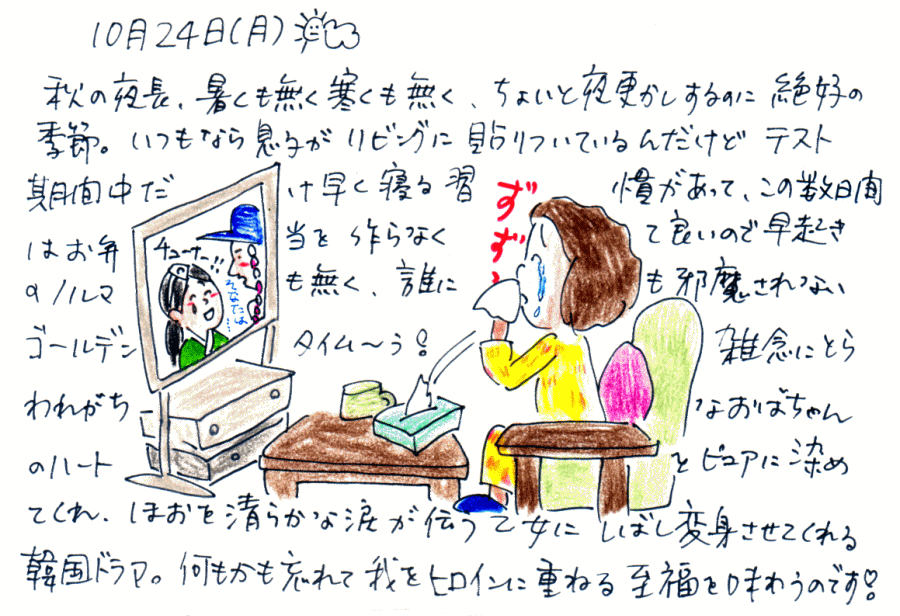 10月24日(月)
秋の夜長、暑くも無く寒くも無く、ちょいと夜更かしするのに絶好の
季節。いつもなら息子がリビングに貼りついているんだけどテスト
期間中だけ早く寝る習慣があって、この数日間
はお弁当を作らなくて良いので早起き
のノルマも無く、誰にも邪魔されない
ゴールデンタイム〜う!
雑念にとら
われがちーなおばちゃん
のハートをピュアに染め
てくれ、ほおを清らかな涙が伝う乙女にしばし変身させてくれる
韓国ドラマ。何もかも忘れて我をヒロインに重ねる至福を味わうのです!
チューナー!!
そなたは…
ずずっ